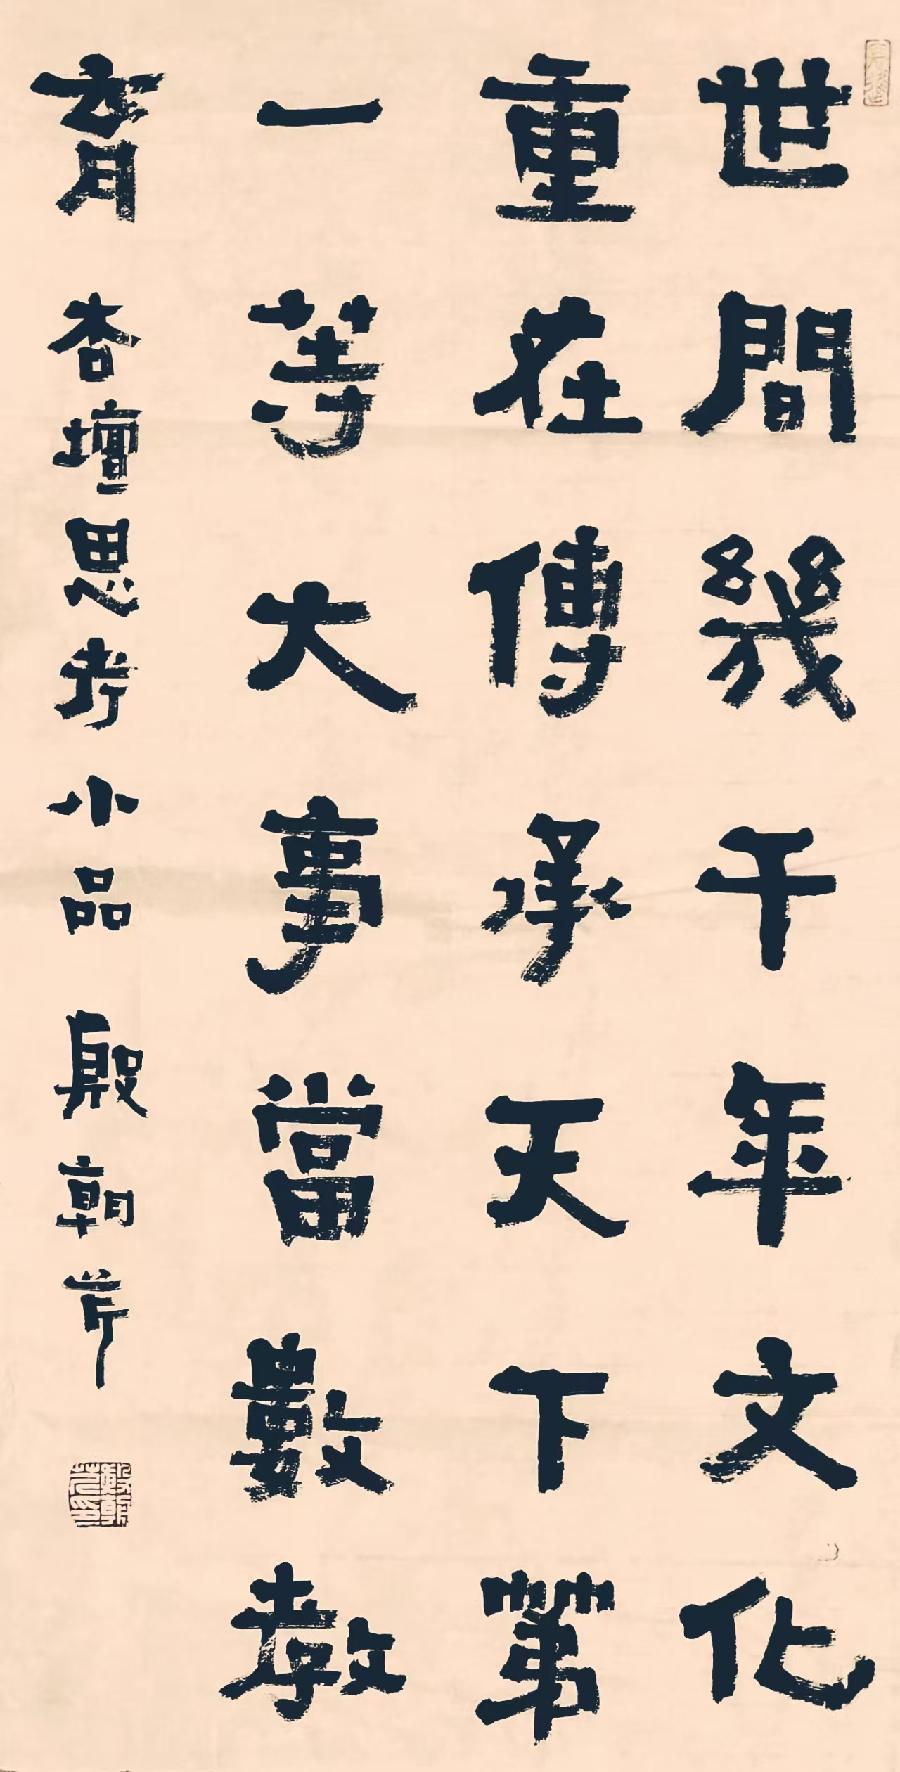 世間幾千年文化
重在傳承天下第
一等大事當數教
育 杏壇思考小品 殷朝芹